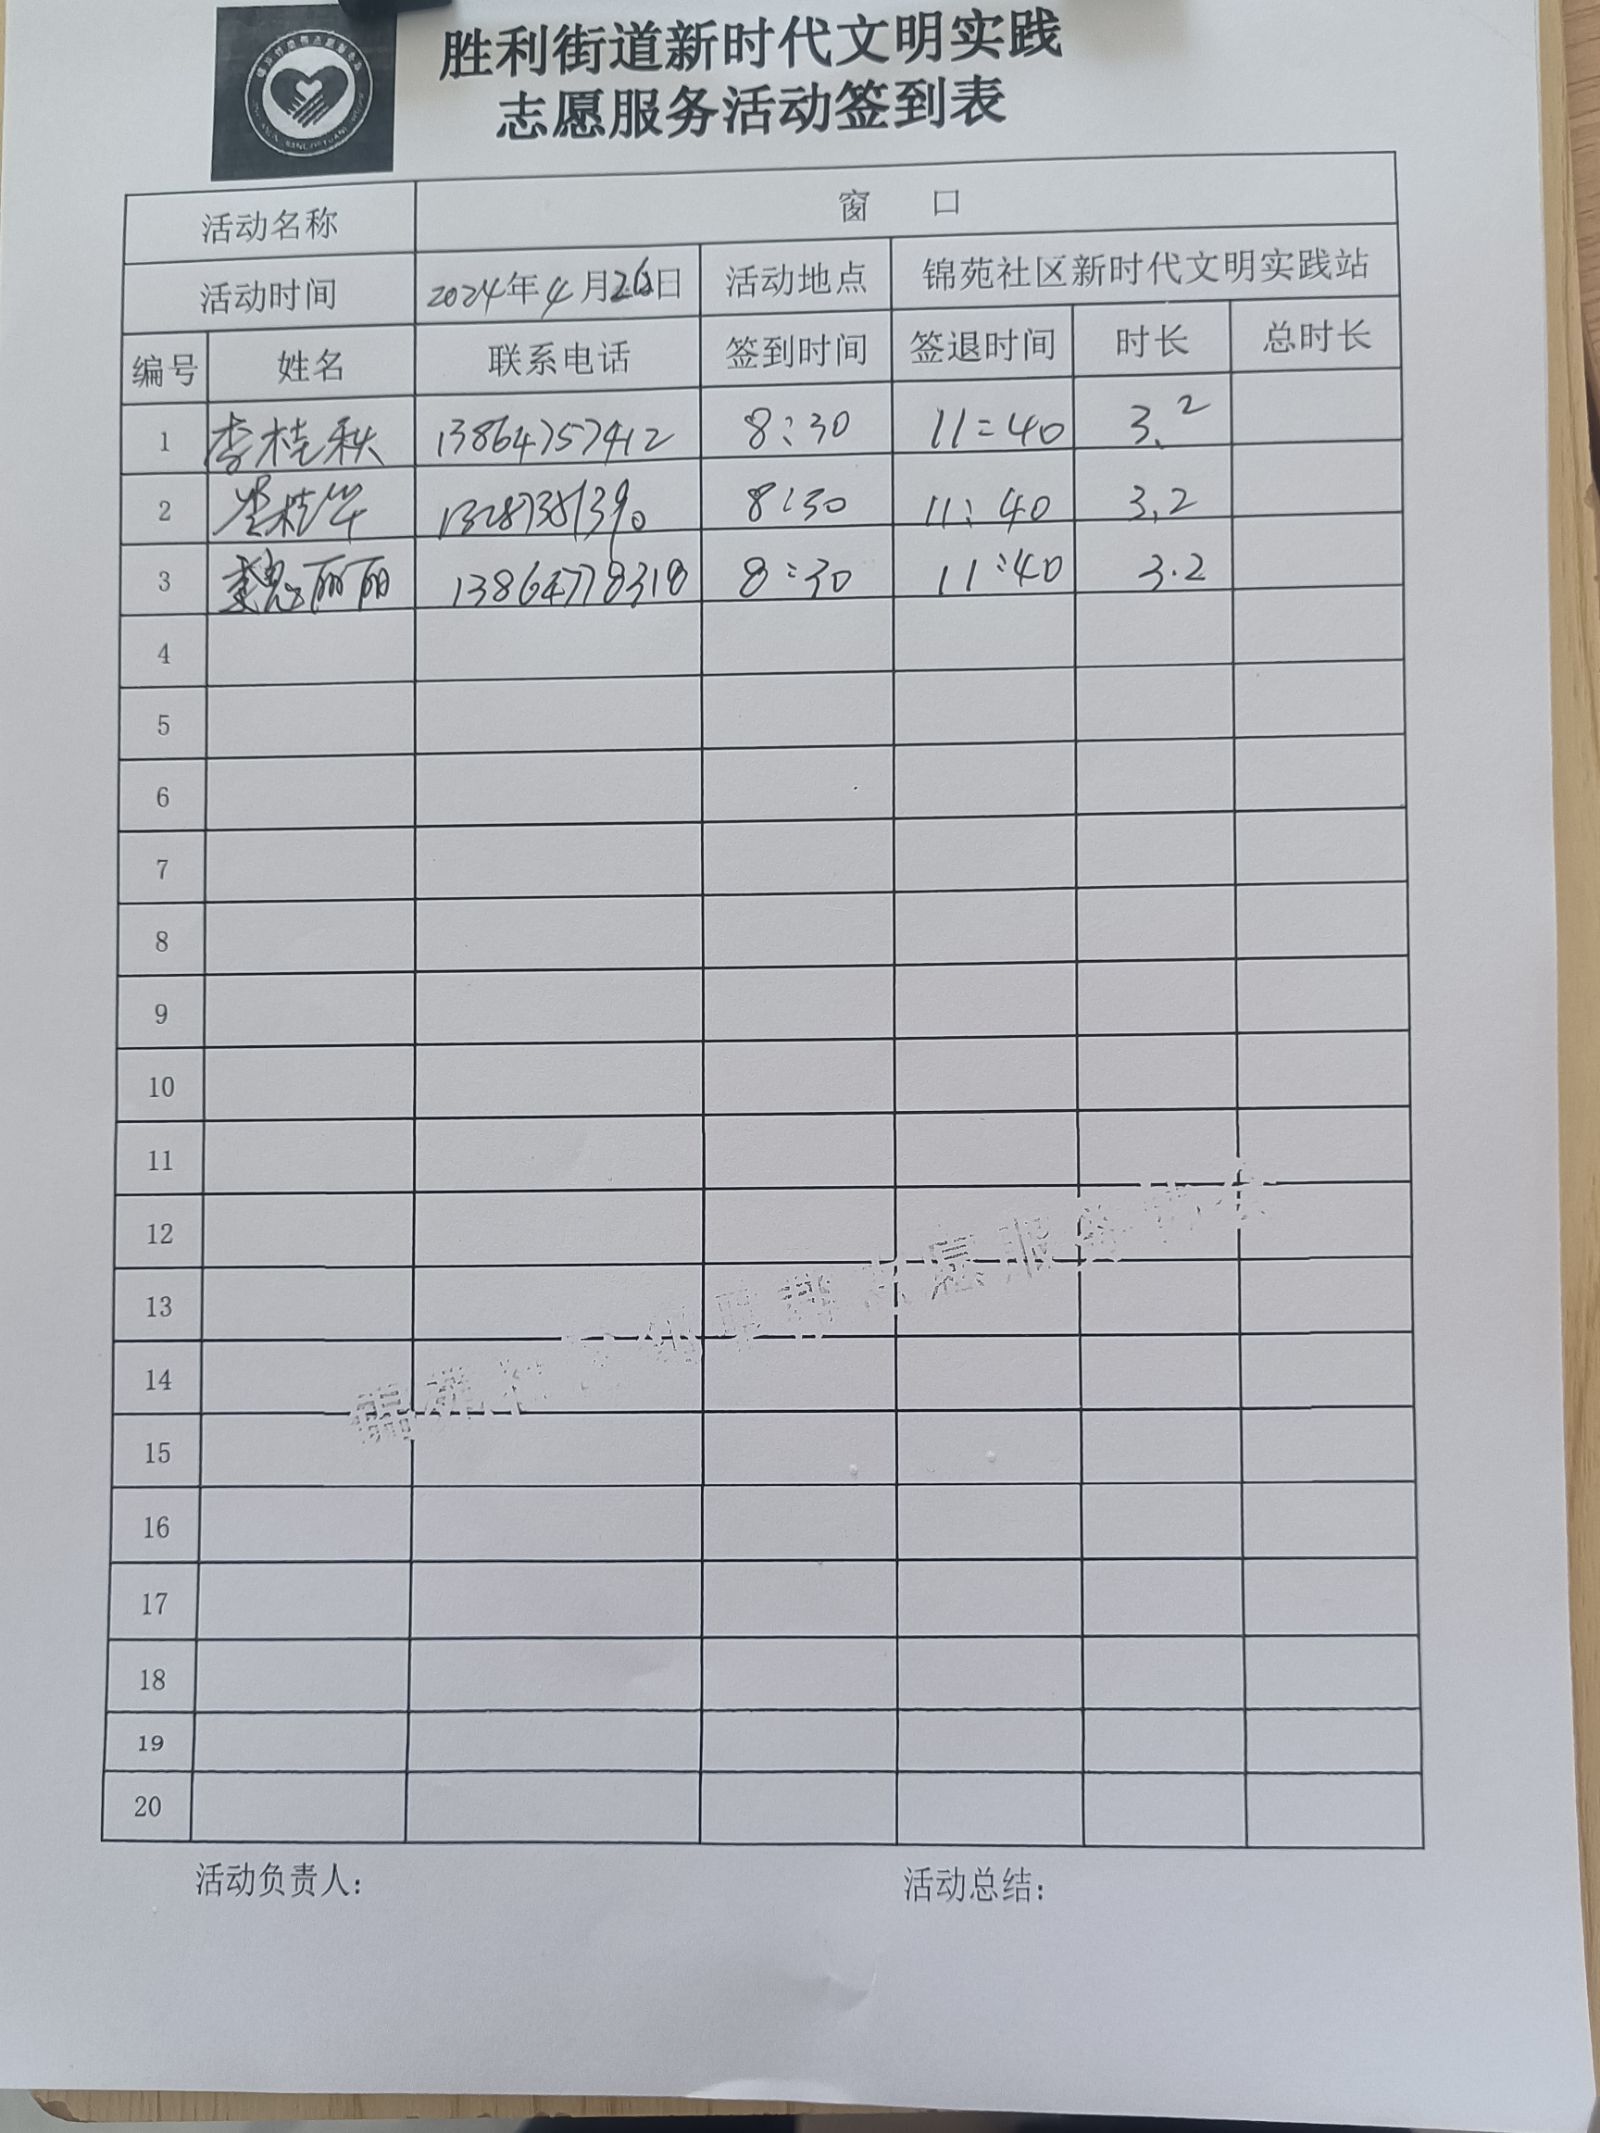 胜利街道新时代文明实践
志愿服务活动签到表
活动名称 窗 口
活动时间 2024年4月26日 活动地点 锦苑社区新时代文明实践站
编号 姓名 联系电话 签到时间 签退时间 时长 总时长
1 李桂秋 13864757412 8:30 11:40 3.2
2 桂华 13287381390 8:30 11:40 3.2
3 魏丽丽 13864778318 8:30 11:40 3.2
4
5
6
7
8
9
10
11
12
13
14
15
16
17
18
19
20
活动负责人: 活动总结: